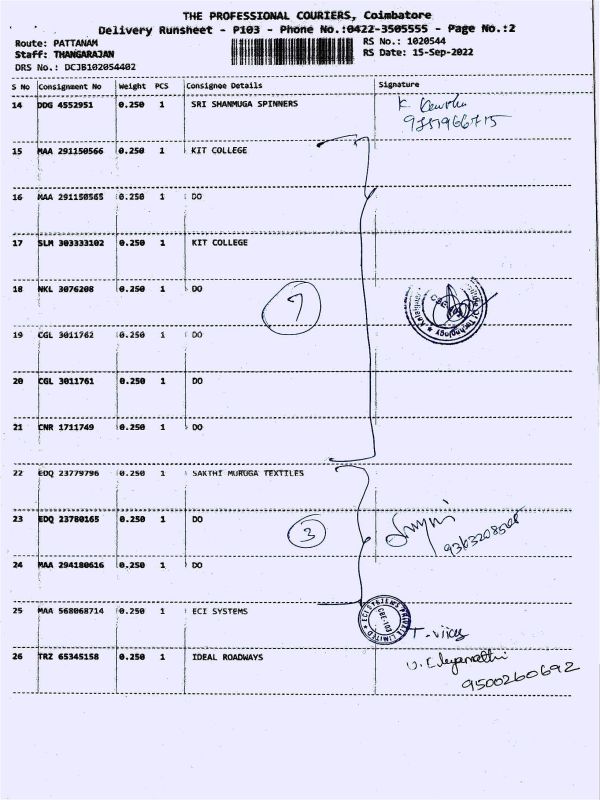 THE PROFESSIONAL COURIERS, Coimbatore
Delivery Runsheet - P103 - Phone No.:0422-3505555 - Page No.:2
Route: PATTANAM RS No.: 1020544
Staff: THANGARAJAN RS Date: 15-Sep-2022
DRS No.: DCJB102054402
S No Consignment No Weight PCS Consignee Details Signature
14 DDG 4552951 0.250 1 SRI SHANMUGA SPINNERS
15 MAA 291150566 0.250 1 KIT COLLEGE
16 MAA 291150565 0.250 1 DO
17 SLM 303333102 0.250 1 KIT COLLEGE
18 NKL 3076208 0.250 1 DO
7
19 CGL 3011762 0.250 1 DO
20 CGL 3011761 0.250 1 DO
21 CNR 1711749 0.250 1 DO
22 EDQ 23779796 0.250 1 SAKTHI MURUGA TEXTILES
23 EDQ 23780165 0.250 1 DO
3
24 MAA 294180616 0.250 1 DO
25 MAA 568068714 0.250 1 ECI SYSTEMS
ECI SYSTEMS PRIVATE LIMITED
CBE-103
T-vijay
26 TRZ 65345158 0.250 1 IDEAL ROADWAYS
9500260692